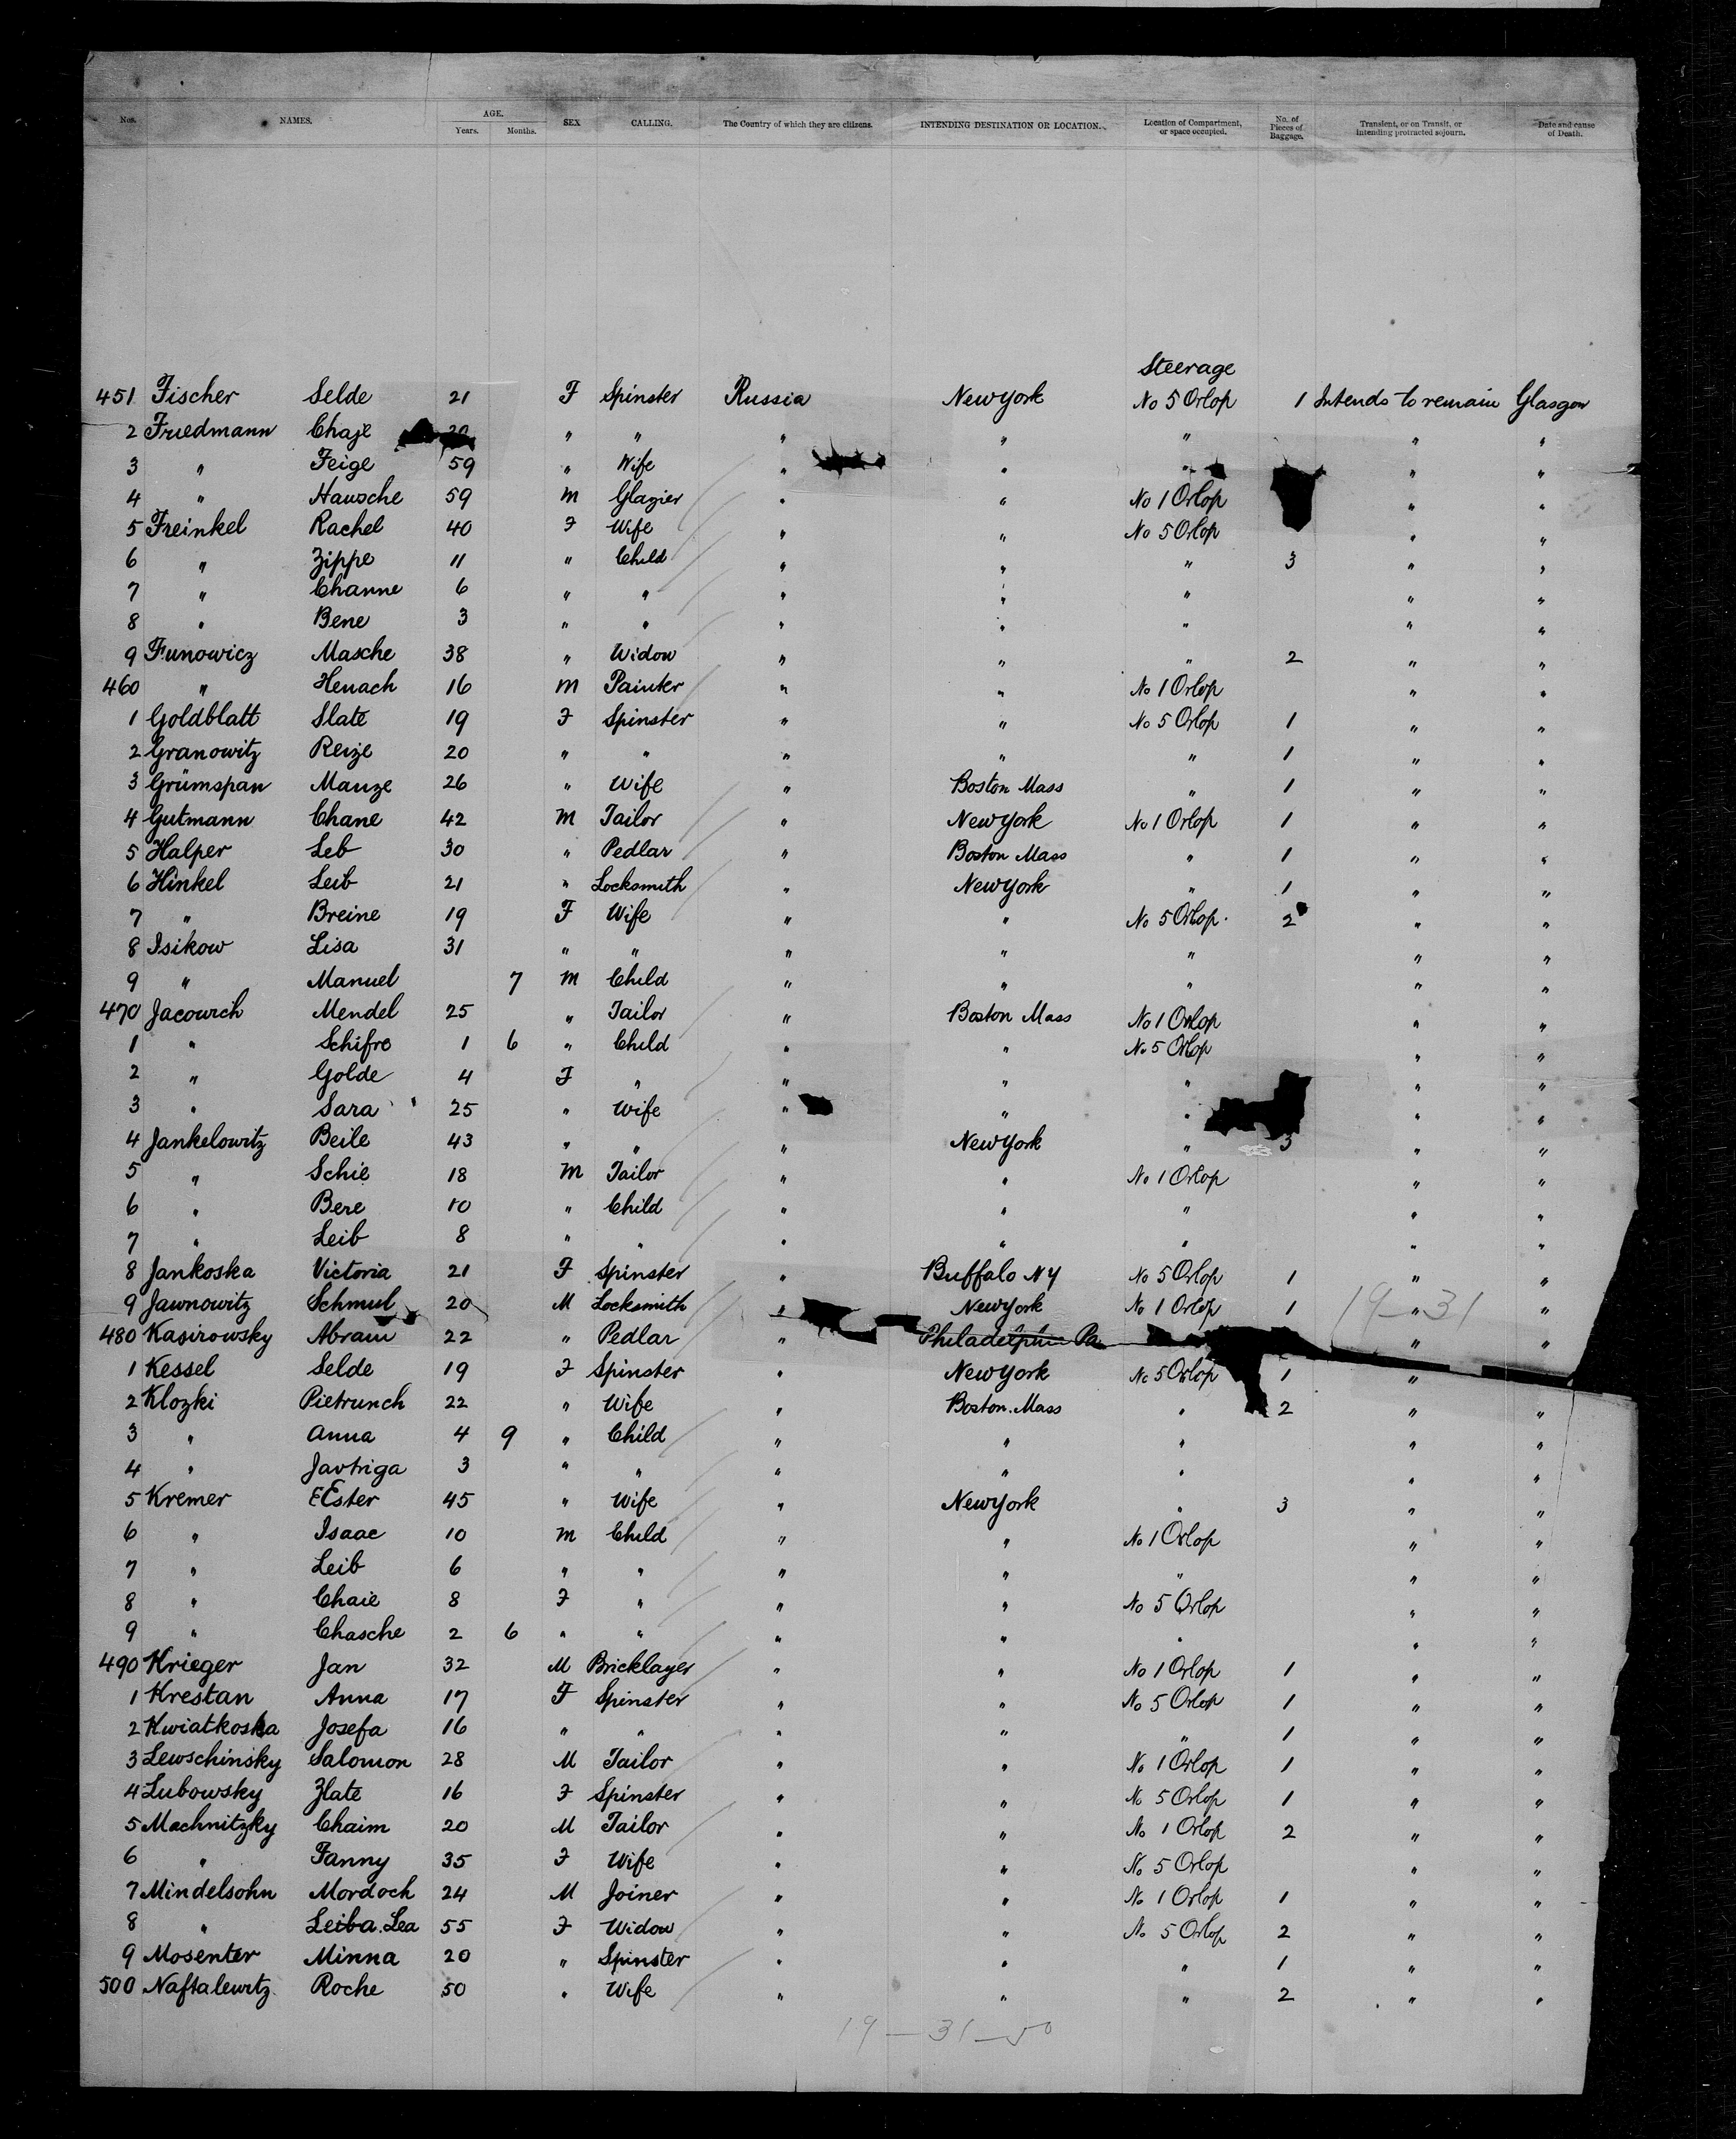 Nos. NAMES. AGE. Years. Months. SEX CALLING. The Country of which they are citizens. INTENDING DESTINATION OR LOCATION. Location of Compartment, or space occupied. No. of Pieces of Baggage. Transient, or on Transit, or intending protracted sojourn. Date and cause of Death.
Steerage
451 Fischer Selde 21 F Spinster Russia New York No 5 Orlop 1 Intends to remain Glasgow
2 Friedmann Chaje 20 " " " " " " "
3 " Feige 59 " Wife " " " " "
4 " Hausche 59 M Glazier " " No 1 Orlop " "
5 Freinkel Rachel 40 F Wife " " No 5 Orlop " "
6 " Zippe 11 " Child " " " 3 " "
7 " Channe 6 " " " " " " "
8 " Bene 3 " " " " " " "
9 Funowicz Masche 38 " Widow " " " 2 " "
460 " Henach 16 M Painter " " No 1 Orlop " "
1 Goldblatt Slate 19 F Spinster " " No 5 Orlop 1 " "
2 Granowitz Reize 20 " " " " " 1 " "
3 Grümspan Mauze 26 " Wife " Boston Mass " 1 " "
4 Gutmann Chane 42 M Tailor " New York No 1 Orlop 1 " "
5 Halper Leb 30 " Pedlar " Boston Mass " 1 " "
6 Hinkel Leib 21 " Locksmith " New York " 1 " "
7 " Breine 19 F Wife " " No 5 Orlop 2 " "
8 Isikow Lisa 31 " " " " " " "
9 " Manuel 7 M Child " " " " "
470 Jacowich Mendel 25 " Tailor " Boston Mass No 1 Orlop " "
1 " Schifre 1 6 " Child " " No 5 Orlop " "
2 " Golde 4 F " " " " " "
3 " Sara 25 " Wife " " " " "
4 Jankelowitz Beile 43 " " " New York " 3 " "
5 " Schie 18 M Tailor " " No 1 Orlop " "
6 " Bere 10 " Child " " " " "
7 " Leib 8 " " " " " " "
8 Jankoska Victoria 21 F Spinster " Buffalo NY No 5 Orlop 1 " "
9 Jawnowitz Schmul 20 M Locksmith " New York No 1 Orlop 1 " 19-31 "
480 Kasirowsky Abram 22 " Pedlar " Philadelphia Pa " "
1 Kessel Selde 19 F Spinster " New York No 5 Orlop 1 "
2 Klozki Pietrunch 22 " Wife " Boston. Mass " 2 " "
3 " Anna 4 9 " Child " " " " "
4 " Javtriga 3 " " " " " " "
5 Kremer Ester 45 " Wife " New York " 3 " "
6 " Isaac 10 M Child " " No 1 Orlop " "
7 " Leib 6 " " " " " " "
8 " Chaie 8 F " " " No 5 Orlop " "
9 " Chasche 2 6 " " " " " " "
490 Krieger Jan 32 M Bricklayer " " No 1 Orlop 1 " "
1 Krestan Anna 17 F Spinster " " No 5 Orlop 1 " "
2 Kwiatkoska Josefa 16 " " " " " 1 " "
3 Lewschinsky Salomon 28 M Tailor " " No 1 Orlop 1 " "
4 Lubowsky Zlate 16 F Spinster " " No 5 Orlop 1 " "
5 Machnitzky Chaim 20 M Tailor " " No 1 Orlop 2 " "
6 " Fanny 35 F Wife " " No 5 Orlop " "
7 Mindelsohn Mordoch 24 M Joiner " " No 1 Orlop 1 " "
8 " Leiba. Lea 55 F Widow " " No 5 Orlop 2 " "
9 Mosenter Minna 20 " Spinster " " " 1 " "
500 Naftalewitz Roche 50 " Wife " " " 2 " "
19-31-50